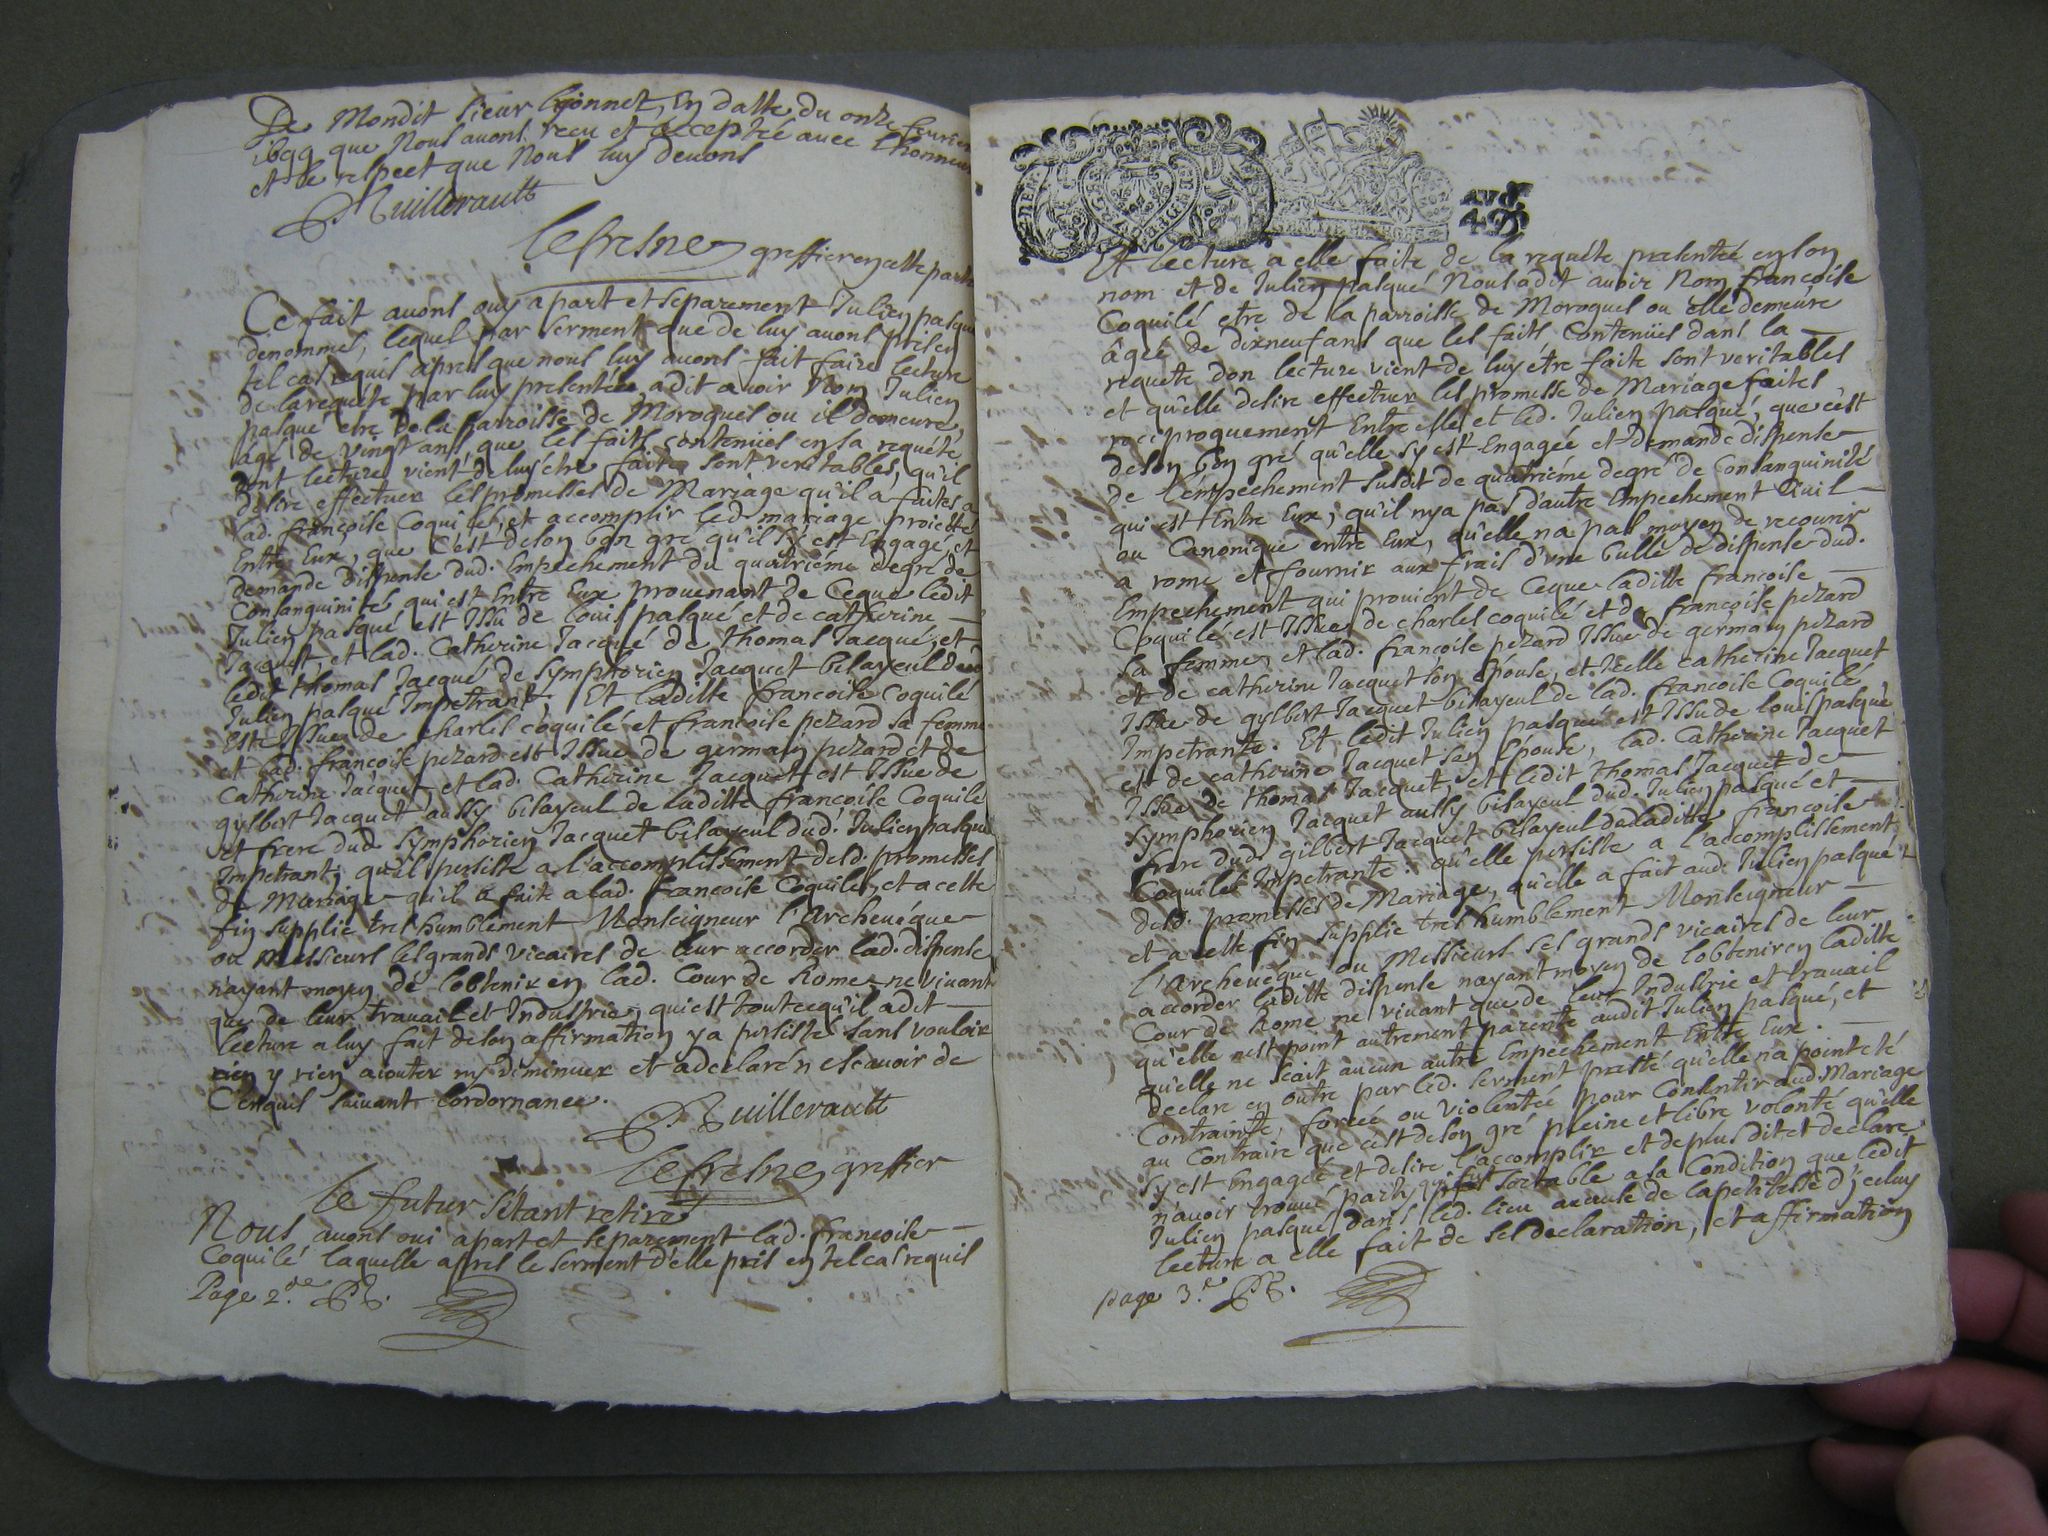 De Mondit sieur Lyonnet, En datte du onze feurier
1699 que Nous auons receu et accepté auec l'honneur
et le respect que Nous luy deuons
Ruillerault
Lefresne greffier en cette partie
Ce fait auons ouy apart et separement Julien pasqué
denommé, lequel par serment que de luy auons pris en
tel cas requis apres que nous luy auons fait faire lecture
de la requéte par luy presentée, a dit auoir Nom Julien
pasqué etre de la parroisse de Moroques ou il demeure,
agé de vingt ans, que les faits contenües en sa requéte
dont lecture vient de luy étre faite sont veritables, qu'il
desire effectuer les promesses de Mariage qu'il a faites a
lad. françoise Coquilé, et accomplir led. mariage proietté
Entre Eux, que C'est de son bon gré qu'il s'y est Engagé, et
demande dispense dud. Empechement du quatriéme degré de
Consanguinité qui est Entre Eux prouenant de Ceque Ledit
Julien pasqué est Issu de Louis pasqué et de catherine
Jacquet, et lad. Catherine Jacqué de thomas Jacqué, et
ledit thomas Jacqué de Symphorien Jacquet bisayeul dud
Julien pasqué Impetrant, Et laditte francoise Coquilé
Est Issue de charles coquilé et francoise pezard sa femme
et lad. françoise pezard est Issue de germain pezard et de
Catherine Jacquet et lad. Catherine Jacquet est Issue de
gylbert Jacquet aussy bisayeul de laditte françoise Coquilé
et frere dud. Symphorien Jacquet bisayeul dud. Julien pasqué
Impetrant, qu'il persiste a l'accomplissement desd. promesses
de Mariage qu'il a faite a lad. françoise Coquilé, et a cette
fin supplie tres humblement Monseigneur l'Archeuéque
ou Messieurs les grands vicaires de leur accorder lad. dispense
n'ayant moyen de lobtenir en lad. Cour de Rome ne viuant
que de leur trauail et Industrie, qui est tout cequ'il a dit
lecture a luy fait de son affirmation y a persisté sans vouloir
rien y rien aiouter ny diminuer et a declaré ne scauoir de
Cenquis suiuant lordonnance.
Ruillerault
Lefresne greffier
Le futur s'étant retiré
Nous auons oui apart et separement lad. françoise
Coquilé laquelle apres le serment d'elle pris en tel cas requis
Page 2.de PR.
AVG.
49
Et Lecture a elle faite de la requéte presentée en son
nom et de Julien pasqué Nous a dit auoir Nom françoise
Coquilé etre de la parroisse de Moroques ou elle demeure
âgée de dixneuf ans que les faits Contenües dans la
requette don lecture vient de luy étre faite sont veritables
et qu'elle desire effectuer les promesse de Mariage faites
reciproquement Entre elle et led. Julien pasqué, que c'est
de son bon gré qu'elle s'y est Engagée et demande dispense
de l'émpechement susdit de quatriéme degré de Consanguinité
qui est Entre Eux, qu'il n'y a pas d'autre Empechement Ciuil
ou Canonique entre Eux, qu'elle na pas moyen de recourir
a rome et fournir aux frais d'une bulle de dispense dud.
Empechement qui prouient de Ceque laditte françoise
Coquilé est Issue de charles coquilé et de françoise pezard
sa femme, et lad. françoise pezard Issue de germain pezard
et de catherine Jacquet son Epouse, et Icelle catherine Jacquet
Issue de gylbert Jacquet bisayeul de lad. francoise Coquilé
Impetrante. Et ledit Julien pasqué est Issu de louis pasqué
et de catherine Jacquet son Epouse, lad. Catherine Jacquet
Issue de thomas Jacquet, et ledit thomas Jacquet de
Symphorien Jacquet aussy bisayeul dud. Julien pasqué et
frere dud. gilbert Jacquet bisayeul de laditte françoise
Coquilé Impetrante. qu'elle persiste a l'accomplissement
desd. promesses de Mariage, qu'elle a fait aud. Julien pasqué
et a cette fin supplie tres humblement Monseigneur
l'Archeuéque ou Messieurs ses grands vicaires de leur
accorder laditte dispense nayant moyen de lobtenir en laditte
Cour de Rome ne viuant que de leur Industrie et trauail
qu'elle n'est point autrement parente audit Julien pasqué, et
qu'elle ne scait aucun autre Empechement Entre Eux.
Declare en outre par led. serment presté qu'elle n'a point eté
Contrainte, forcée ou violentée pour Consentir aud. Mariage
au Contraire que c'est de son gré pleine et libre volonté qu'elle
s'y est Engagée et desire l'accomplir et de plus dit et declare
n'auoir trouué party qui fut sortable a sa Condition que ledit
Julien pasqué dans led. lieu acause de la petitesse d'jceluy
lecture a elle fait de ses declaration, et affirmation
page 3.e PR.